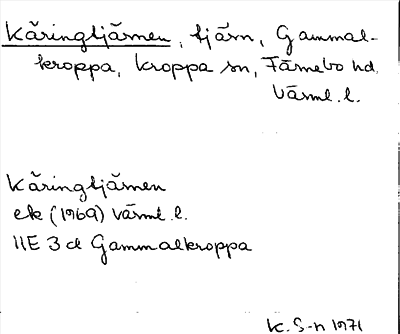 Käringtjärnen, tjärn, Gammal-
kroppa, Kroppa sn, Färnebo hd,
Värml. l.
Käringtjärnen
ek (1969) Värml. l.
11E 3d Gammalkroppa
K. S-n 1971